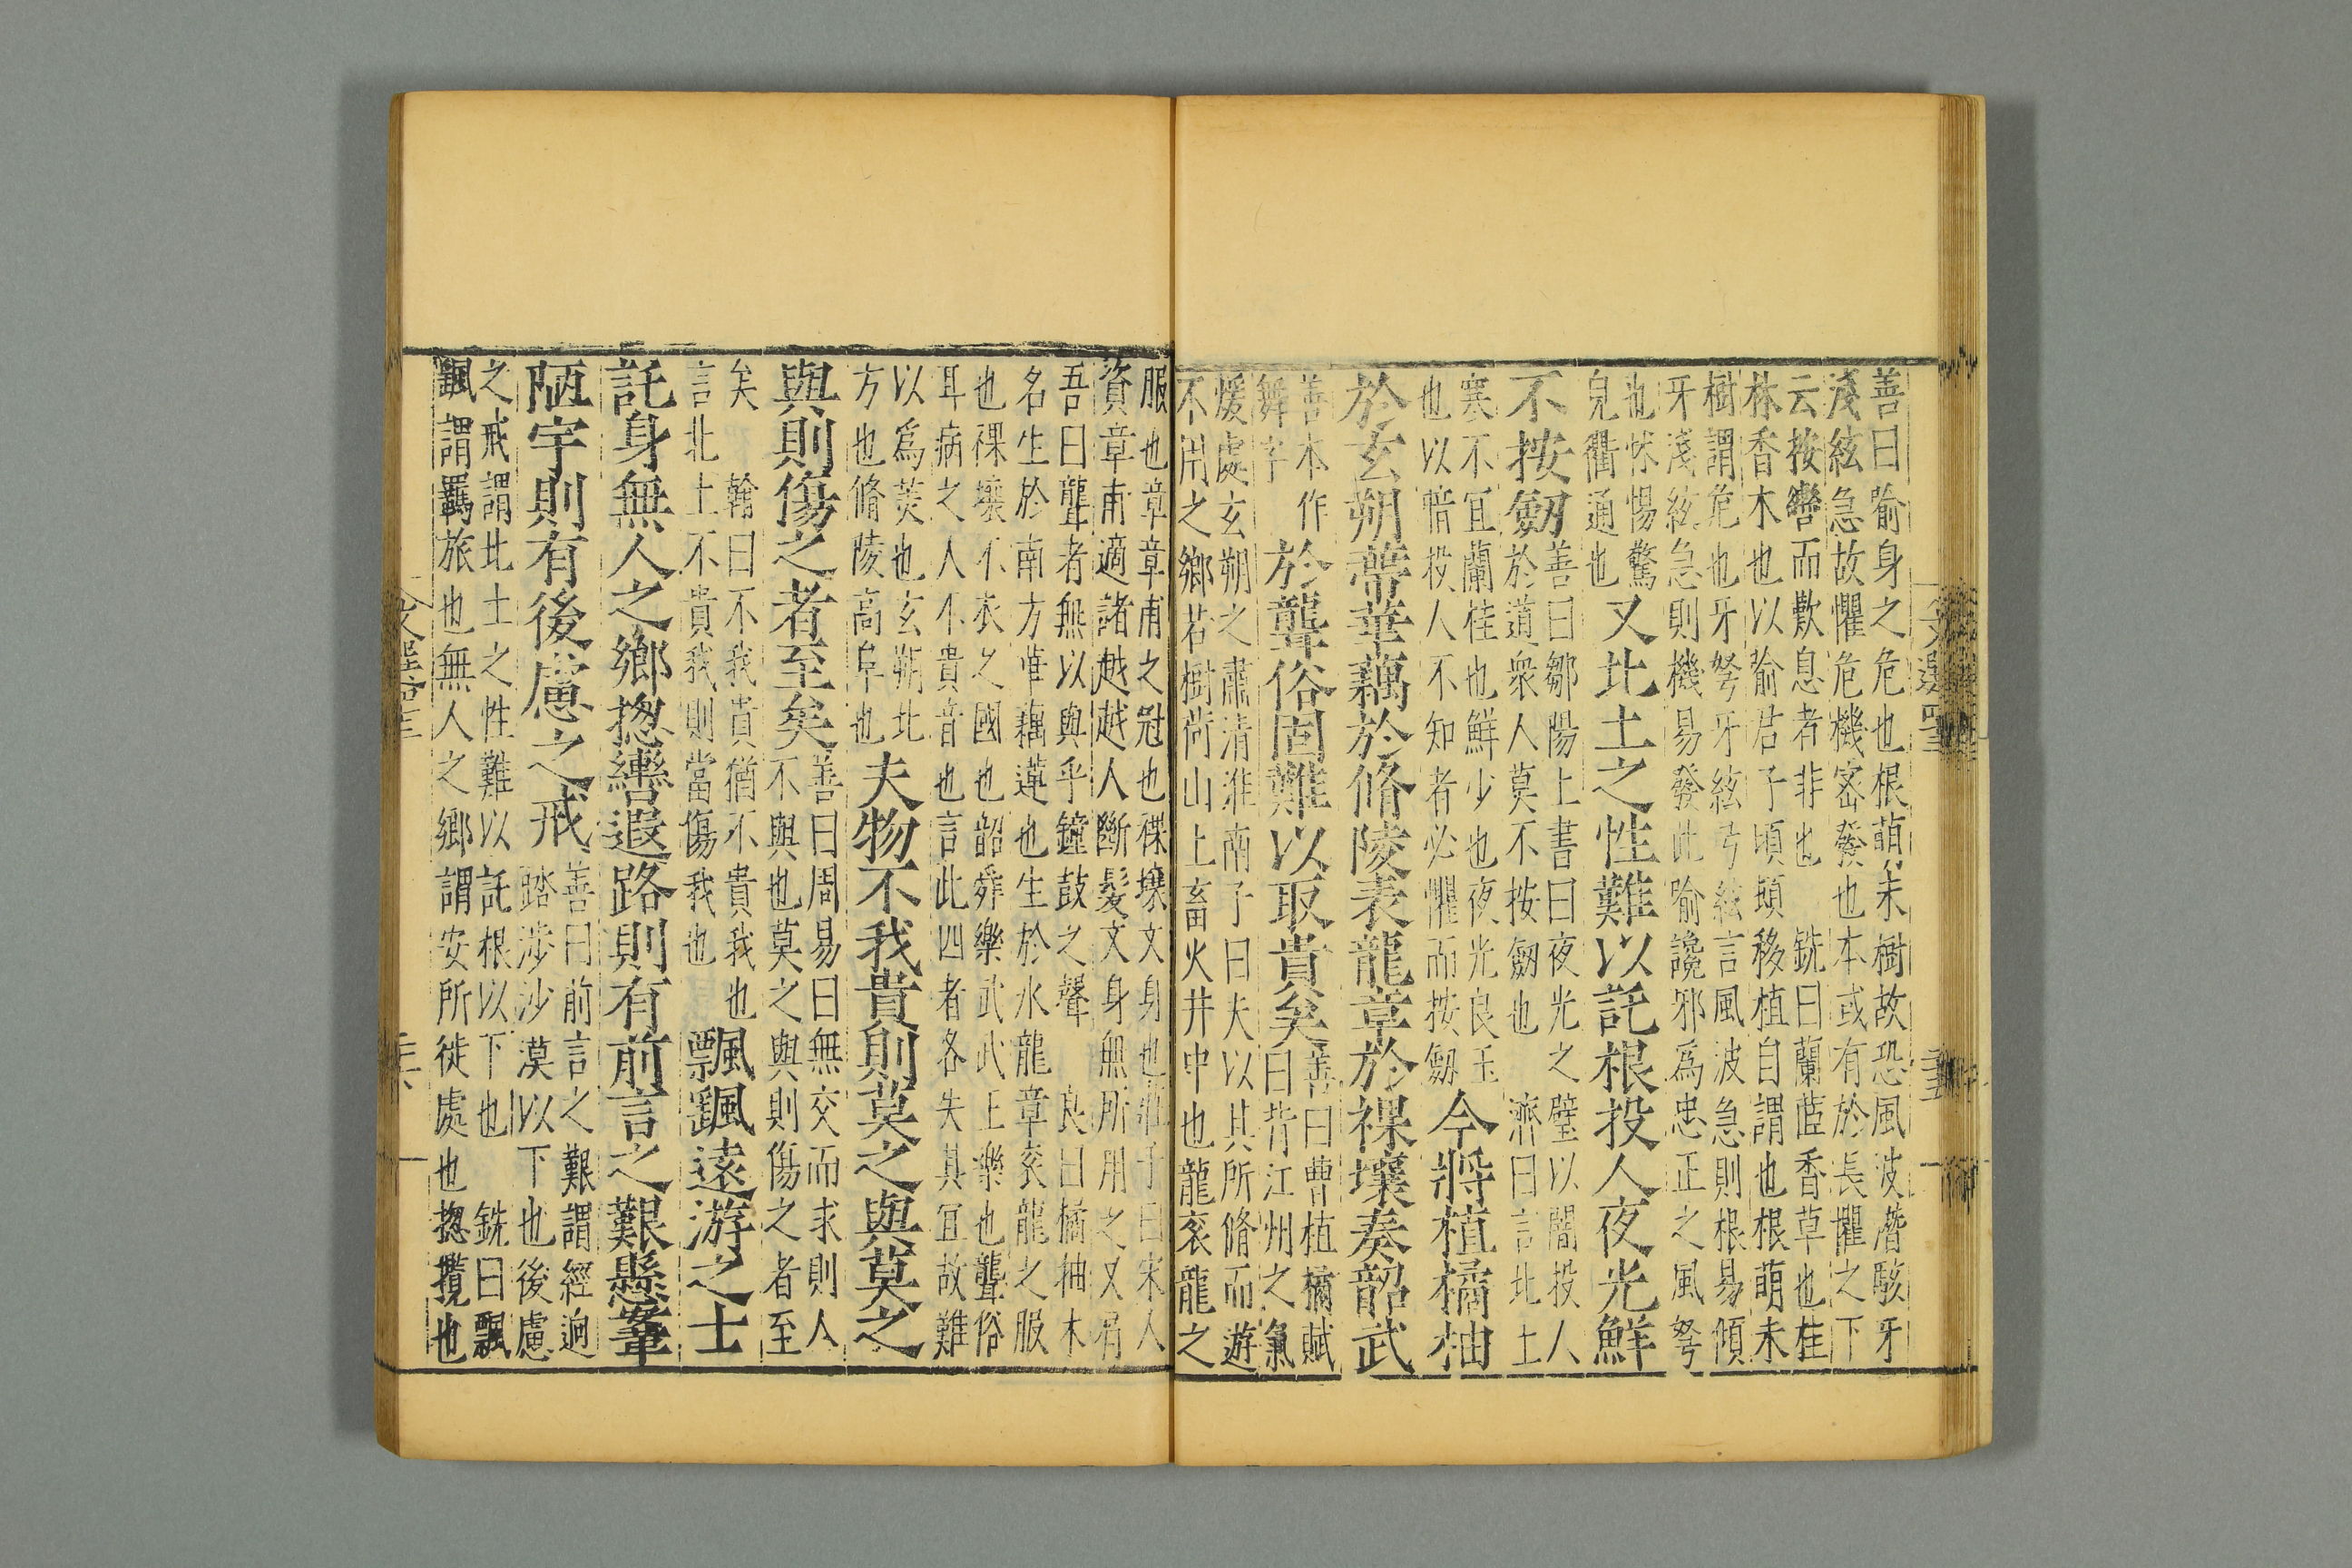 善曰喻身之危也根萌未樹故恐風波潛駭牙
淺絃急故懼危機密發也本或有於長懼之下
云按轡而歎息者非也　銑曰蘭茝香草也桂
林香木也以喻君子頃頭移植自謂也根萌未
樹謂危也牙弩牙絃弓絃言風波急則根易傾
牙淺絃急則機易發此喻讒邪爲忠正之風弩
也怵惕驚
皃衢通也
又北土之性難以託根投人夜光鮮
不按劒
善曰鄒陽上書曰夜光之璧以闇投人
於道衆人莫不按劒也　濟曰言北土
寒不宜蘭桂也鮮少也夜光良玉
也以暗投人不知者必懼而按劒
今將植橘柚
於玄朔蔕華藕於脩陵表龍章於裸壤奏韶武
善本作
舞字
於聾俗固難以取貴矣
善曰曹植橘賦
曰背江州之氣
煖處玄朔之肅清淮南子曰夫以其所脩而遊
不用之鄉若樹荷山上畜火井中也龍衮龍之
服也章章甫之冠也裸壤文身也莊子曰宋人
資章甫適諸越越人斷髮文身無所用之又肩
吾曰聾者無以與乎鐘鼓之聲　良曰橘柚木
名生於南方華藕蓮也生於水龍章衮龍之服
也裸壤不衣之國也韶舜樂武武王樂也聾俗
耳病之人不貴音也言此四者各失其宜故難
以爲美也玄朔北
方也脩陵高阜也
夫物不我貴則莫之與莫之
與則傷之者至矣
善曰周易曰無交而求則人
不與也莫之與則傷之者至
矣　翰曰不我貴猶不貴我也
言北土不貴我則當傷我也
飄颻遠游之士
託身無人之鄉揔轡遐路則有前言之艱懸鞌
陋宇則有後慮之戒
善曰前言之艱謂經迥
踏涉沙漠以下也後慮
之戒謂北土之性難以託根以下也　銑曰飄
颻謂羈旅也無人之鄉謂安所徙處也揔攬也